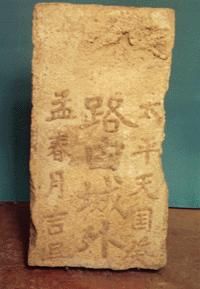 太平天囯癸
路由城外
孟春月吉旦